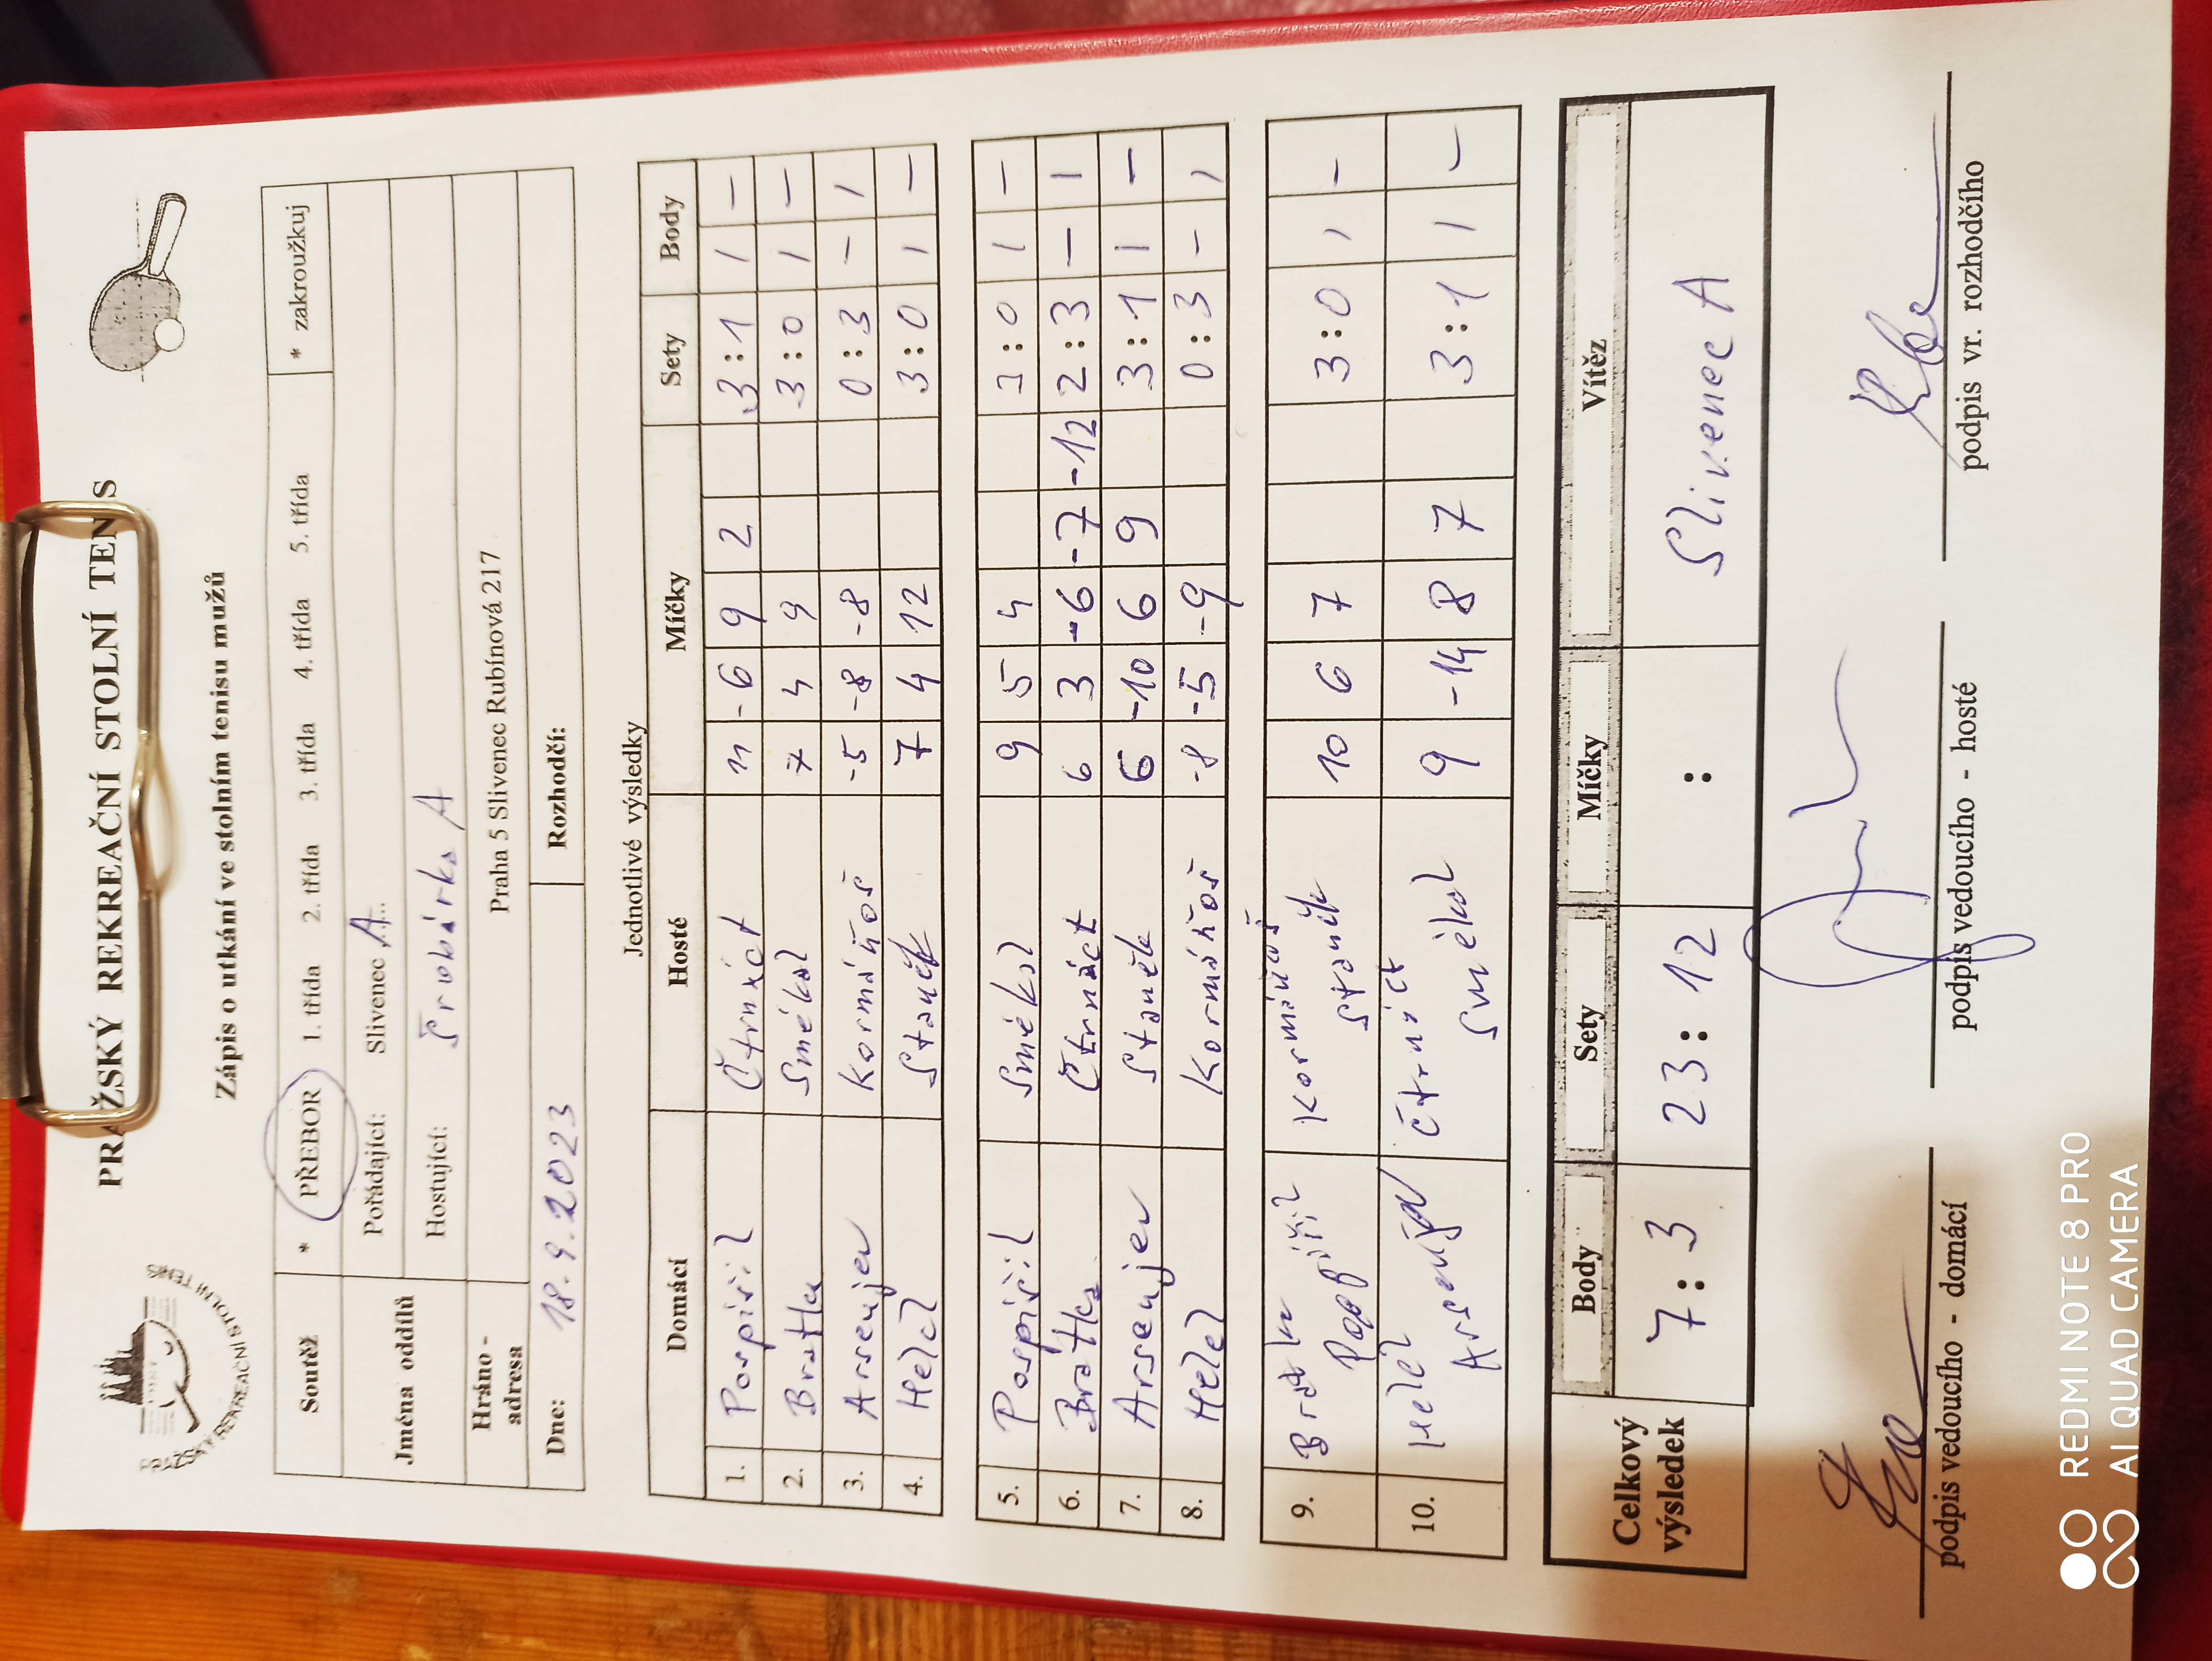 PRAŽSKÝ REKREAČNÍ STOLNÍ TENIS
Zápis o utkání ve stolním tenisu mužů
Soutěž * PŘEBOR 1. třída 2. třída 3. třída 4. třída 5. třída * zakroužkuj
Jména oddílů Pořádající: Slivenec A
Hostující: Šrobárka A
Hráno - adresa Praha 5 Slivenec Rubínová 217
Dne: 18.9.2023 Rozhodčí:
Jednotlivé výsledky
Domácí Hosté Míčky Sety Body
1. Pospíšil Čtrnáct 11 -6 9 2 3:1 1 -
2. Bratka Smékal 7 4 9 3:0 1 -
3. Arsenjev Kormáňoš -5 -8 -8 0:3 - 1
4. Helel Staněk 7 4 12 3:0 1 -
5. Pospíšil Smékal 9 5 4 3:0 1 -
6. Bratka Čtrnáct 6 3 -6 -7 -12 2:3 - 1
7. Arsenjev Staněk 6 -10 6 9 3:1 1 -
8. Helel Kormáňoš -8 -5 -9 0:3 - 1
9. Bratka Kormáňoš 10 6 7 3:0 1 -
Staněk
10. Helel Čtrnáct 9 -14 8 7 3:1 1 -
Arsenjev Smékal
Celkový výsledek Body Sety Míčky Vítěz
7:3 23:12 : Slivenec A
podpis vedoucího - domácí podpis vedoucího - hosté podpis vr. rozhodčího
REDMI NOTE 8 PRO
AI QUAD CAMERA